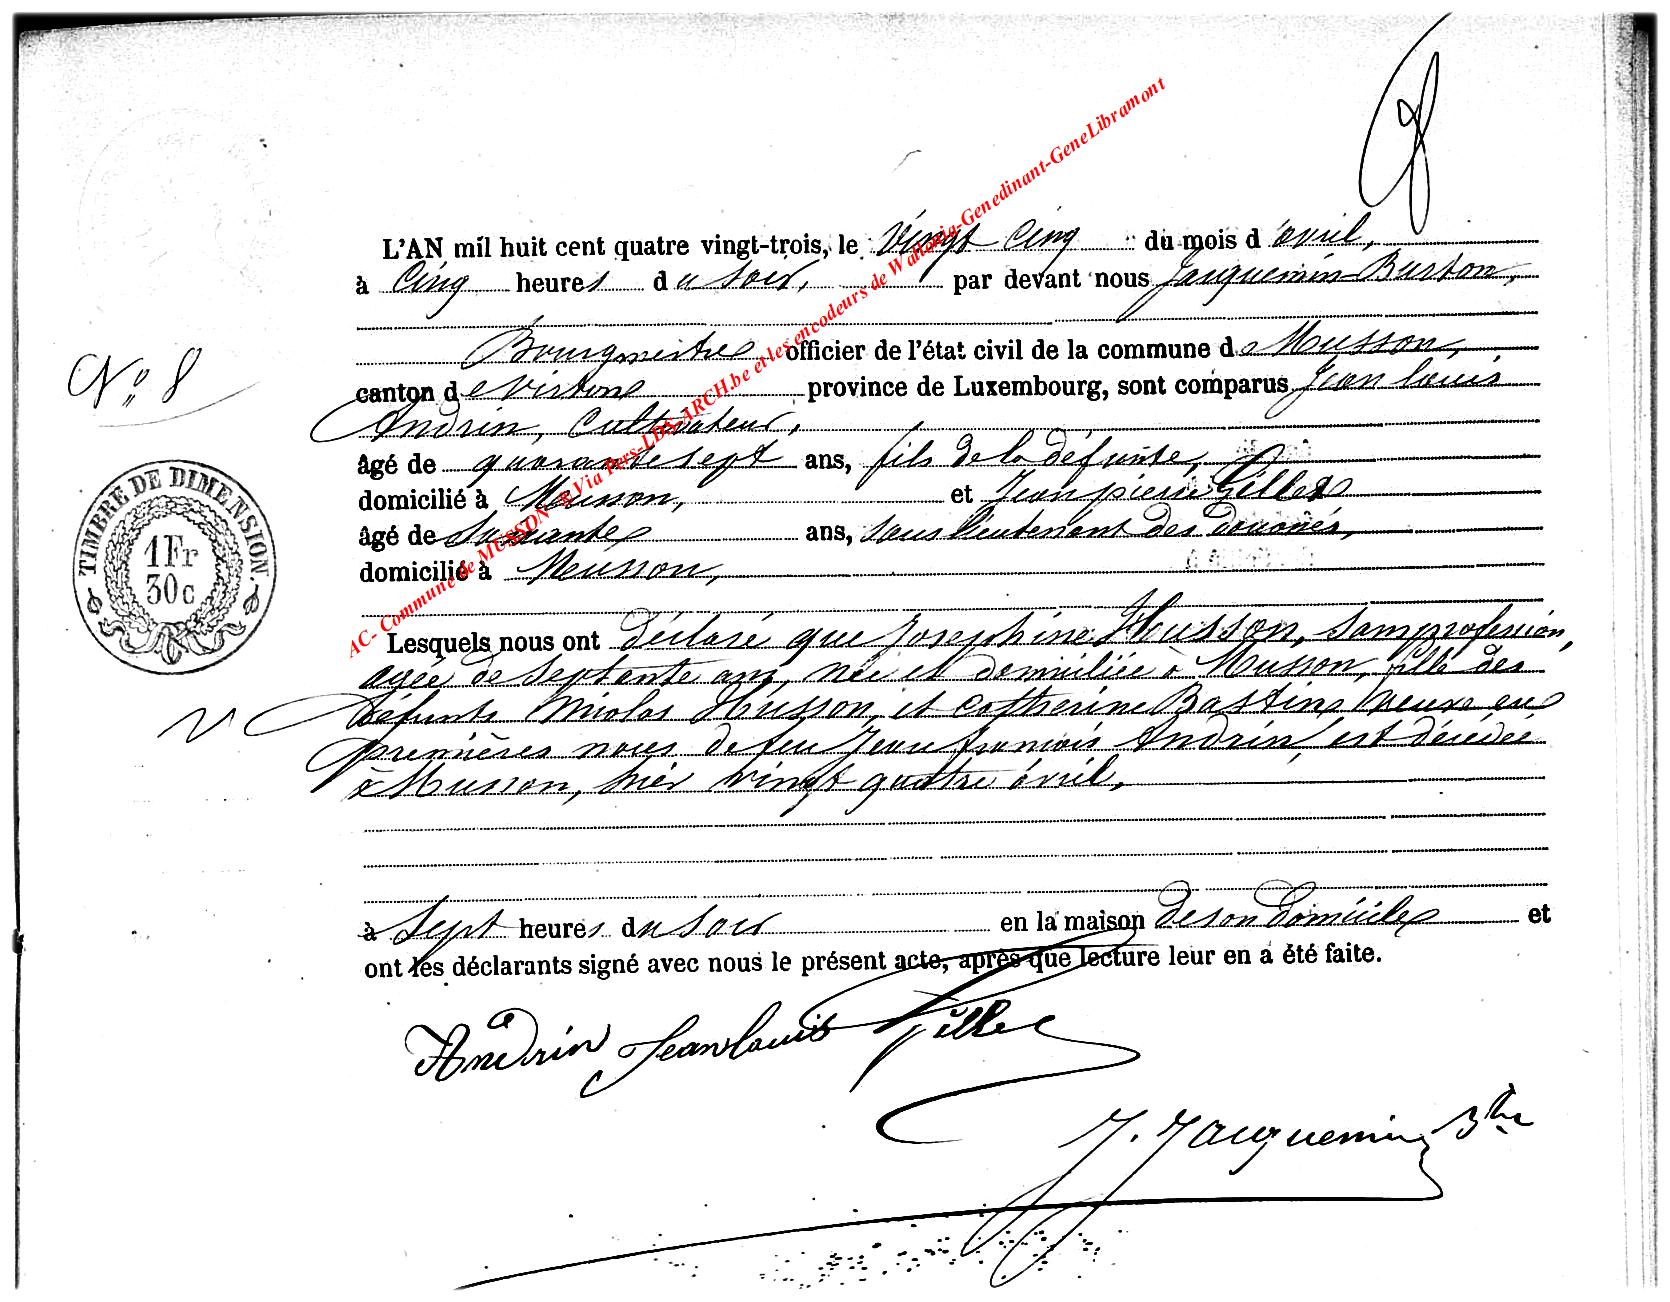 L'AN mil huit cent quatre vingt-trois, le vingt cinq du mois d'avril,
à cinq heures du soir, par devant nous Jacquemin Burton,
Bourgmestre officier de l'état civil de la commune de Musson,
N° 8
canton de Virton province de Luxembourg, sont comparus Jean louis
Andrin, cultivateur,
âgé de quarante sept ans, fils de la défunte,
domicilié à Musson, et Jean pierre Gilles
âgé de ans, sous lieutenant des douanes,
domicilié à Musson,
TIMBRE DE DIMENSION.
1 Fr
30c
Lesquels nous ont déclaré que Josephine Husson, sans profession,
agée de septante ans, née et domiciliée à Musson, fille des
défunts Nicolas Husson, et Catherine Bastin, veuve en
premières noces de feu Jean françois Andrin, est décédée
à Musson, hier vingt quatre avril,
à sept heures du soir en la maison de son domicile et
ont les déclarants signé avec nous le présent acte, après que lecture leur en a été faite.
Andrin Jean louis Gilles
J. Jacquemin Btre
AC- Commune de MUSSON - Via Pers-LDN-ARCH.be et les encodeurs de Wallonia-Genedinant-GeneLibramont